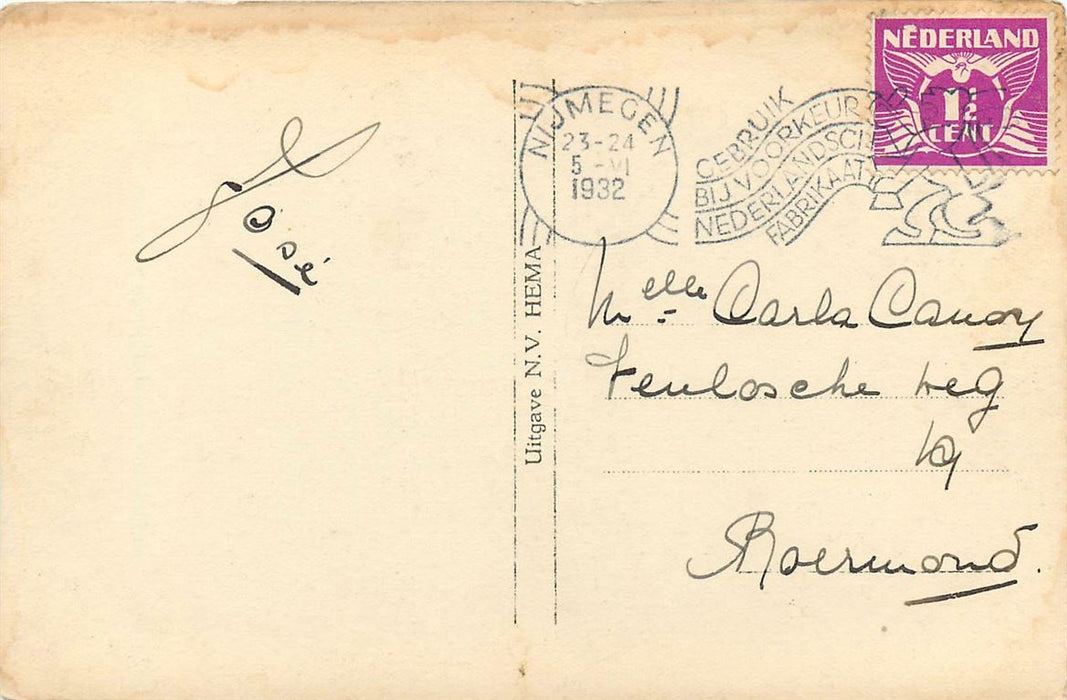 José
Uitgave N.V. HEMA
NEDERLAND
1½
CENT
NIJMEGEN
23-24
5 -VI
1932
GEBRUIK
BIJ VOORKEUR
NEDERLANDSCH
FABRIKAAT
Melle Carla Canoy
Venlosche weg
Roermond.